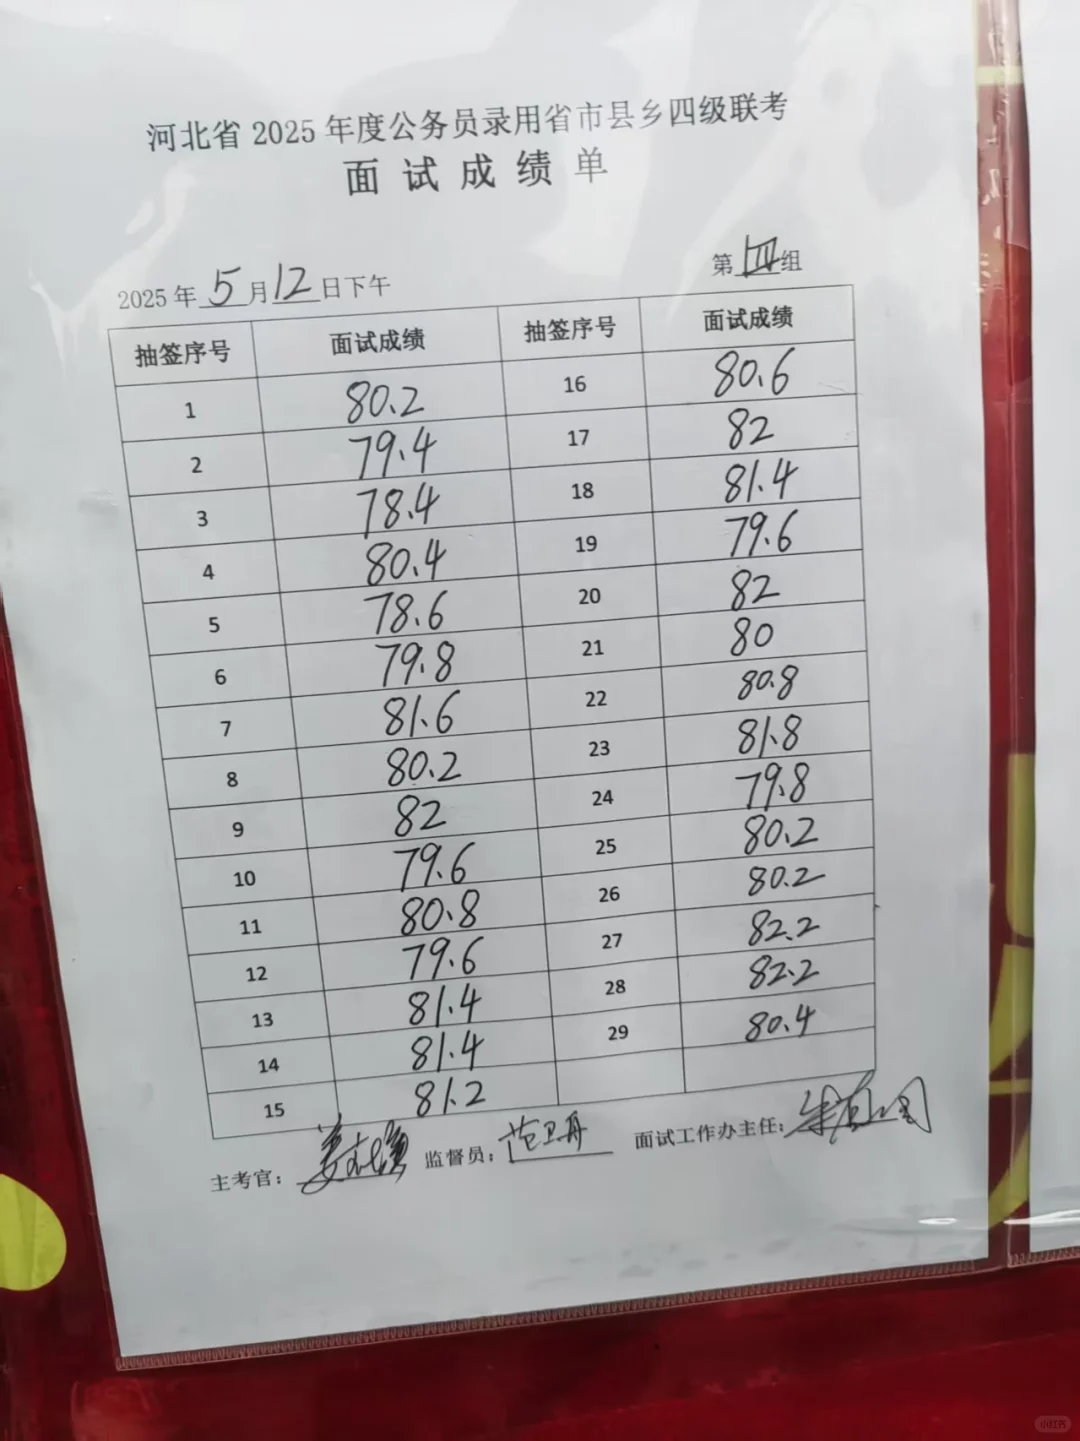 河北省 2025 年度公务员录用省市县乡四级联考
面 试 成 绩 单
2025 年 5 月 12 日下午 第 四 组
抽签序号 面试成绩 抽签序号 面试成绩
1 80.2 16 80.6
2 79.4 17 82
3 78.4 18 81.4
4 80.4 19 79.6
5 78.6 20 82
6 79.8 21 80
7 81.6 22 80.8
8 80.2 23 81.8
9 82 24 79.8
10 79.6 25 80.2
11 80.8 26 80.2
12 79.6 27 82.2
13 81.4 28 82.2
14 81.4 29 80.4
15 81.2
主考官： 监督员：范卫丹 面试工作办主任：